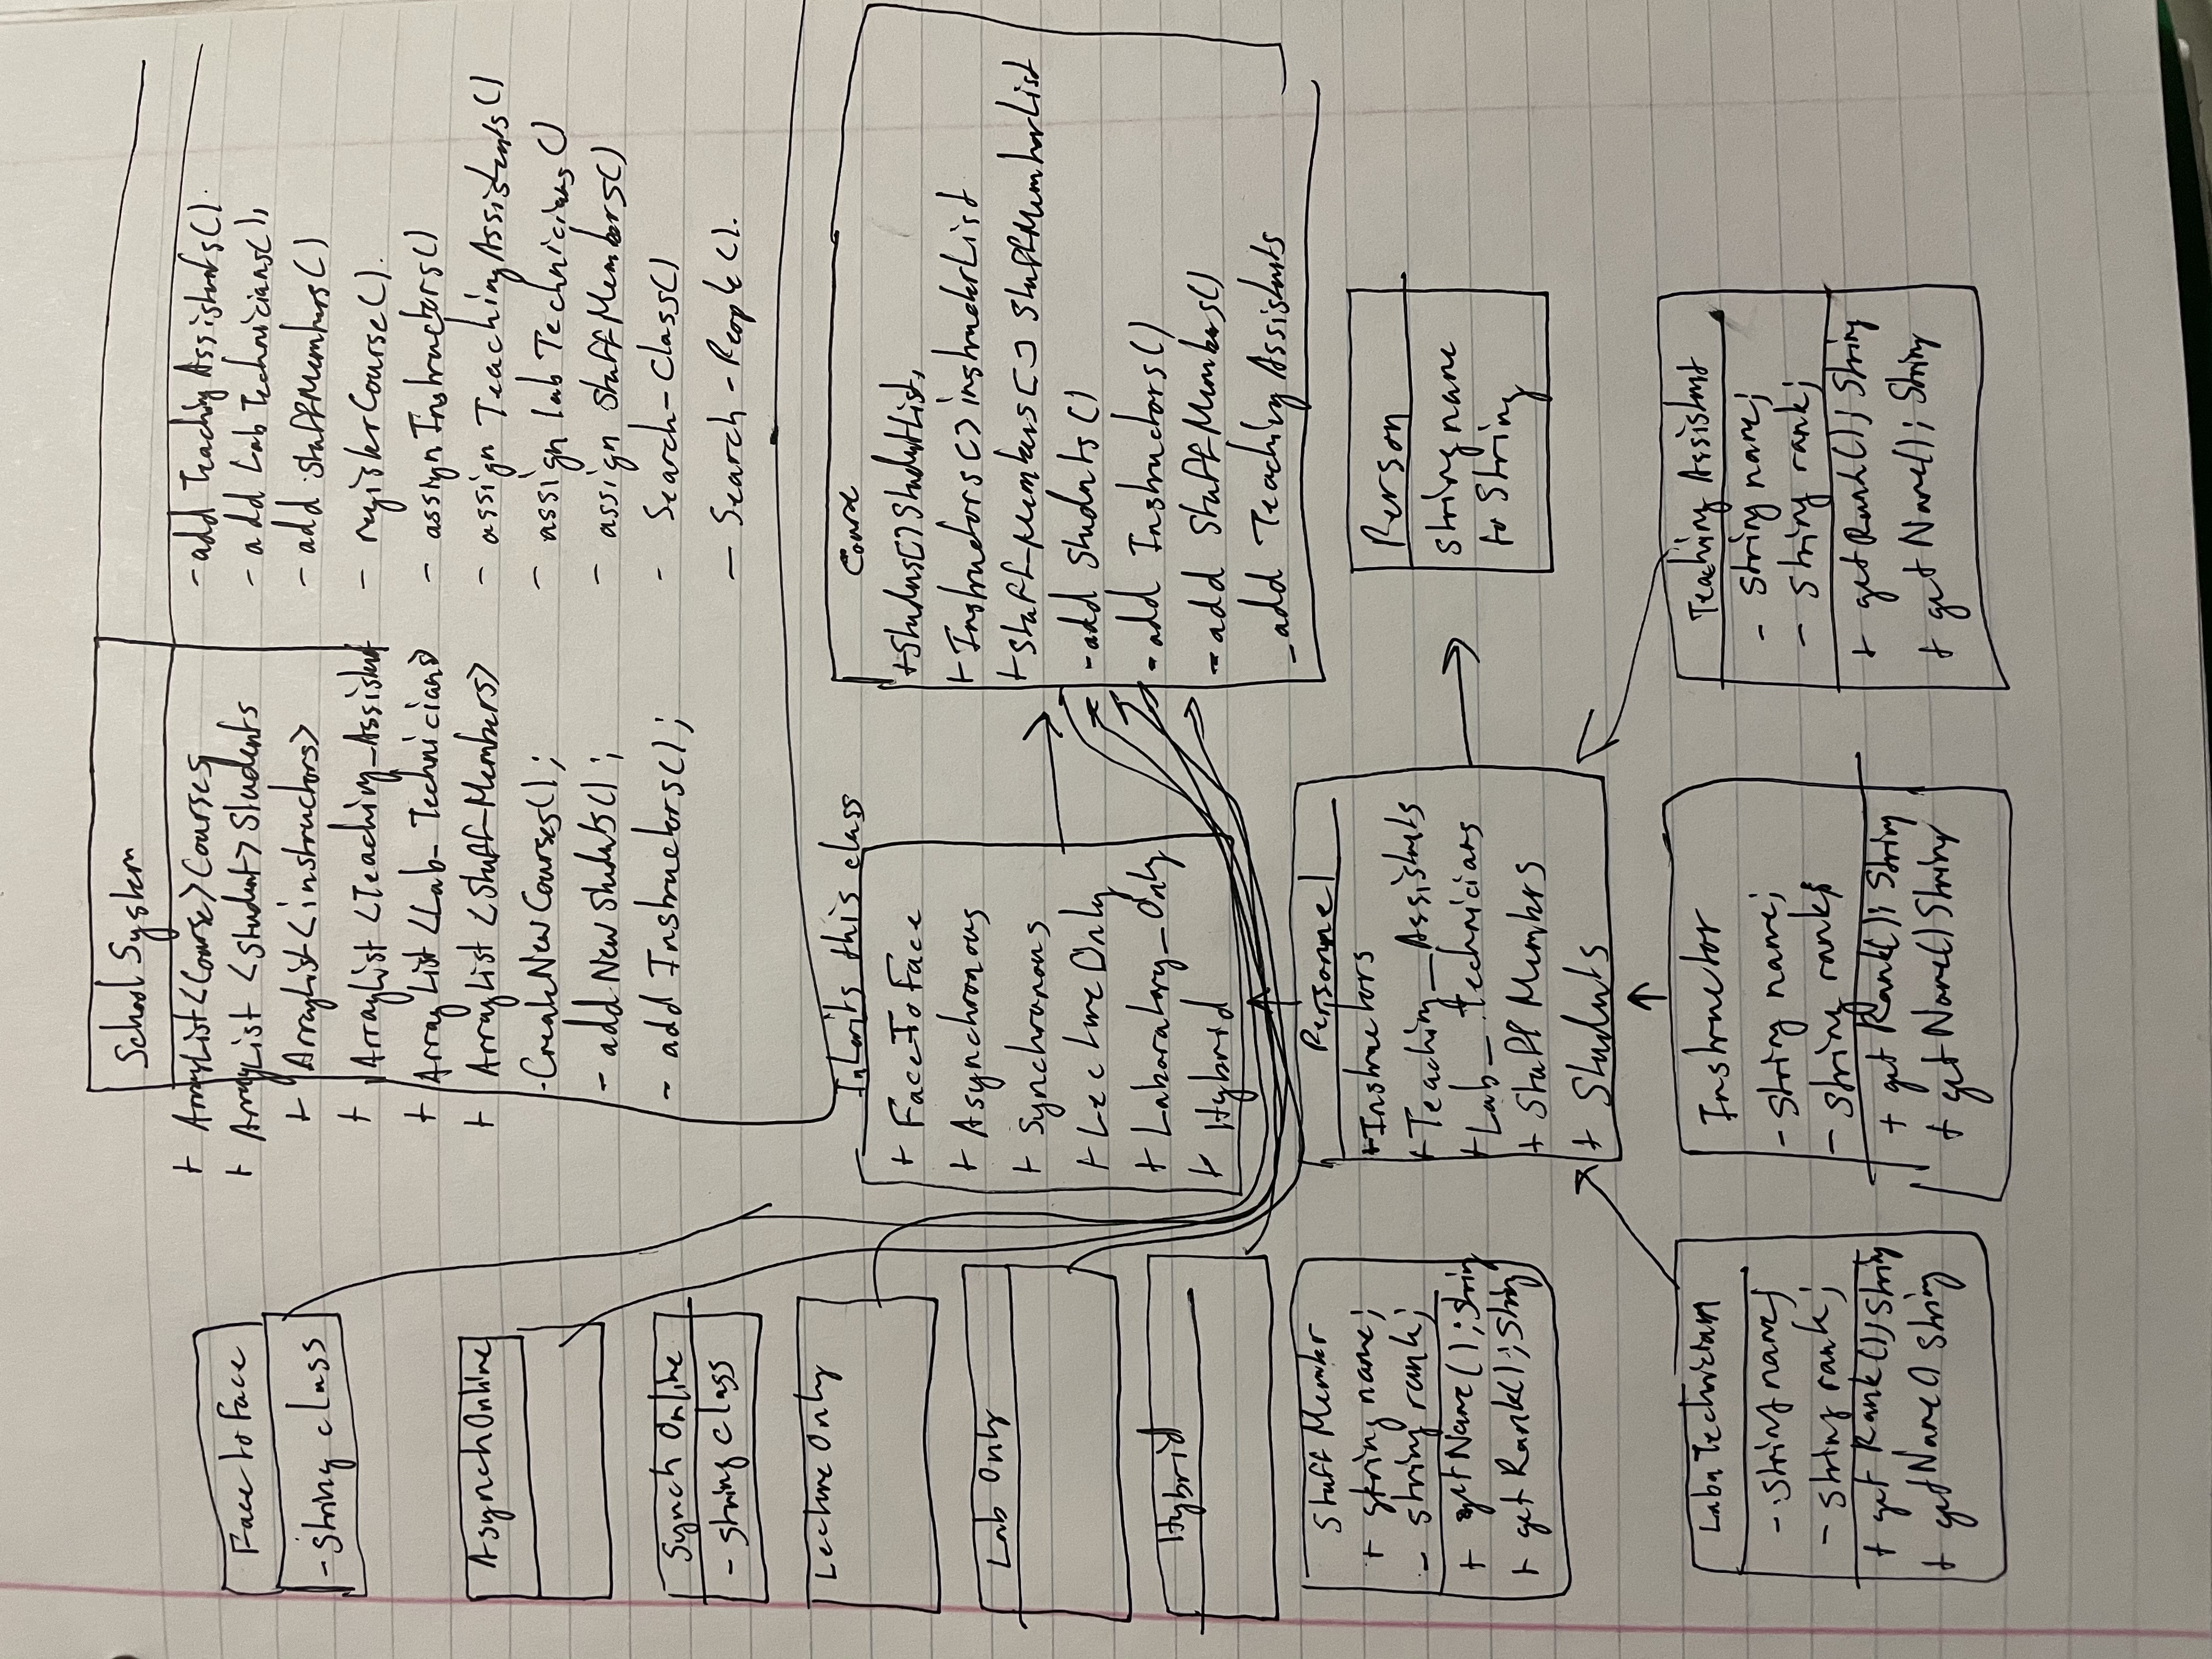 School System
+ ArrayList <Course> Courses
+ ArrayList <Student> Students
+ ArrayList <instructors>
+ ArrayList <Teaching_Assistant
+ ArrayList <Lab_Technicians>
+ ArrayList <Staff_Members>
-CreateNewCourses();
- add New Students();
- add Instructors();
- add Teaching Assistants().
- add Lab Technicians(),
- add StaffMembers()
- registerCourse().
- assign Instructors()
- assign TeachingAssistents()
- assign lab Technicians()
- assign StaffMembers()
- Search-Class()
- Search-People().
Face to Face
- String class
AsynchOnline
Synch Online
- String class
Lecture Only
Lab Only
Hybrid
Inherits this class
+ FaceToFace
+ Asynchronous
+ Synchronous
+ LectureOnly
+ Laboratory_Only
+ Hybrid
Course
+Studens[] StudentList,
+ Instructors[] instructerList
+ Staff_Members[] StaffMemberList
- add Students()
- add Instructors()
- add StaffMembers()
- add Teaching Assistants
Staff Member
+ String name;
- String rank;
+ getName(); String
+ get Rank(); String
Personnel
+Instructors
+Teaching_Assistants
+Lab_Technicians
+ Staff Members
+ Students
Person
String name
to String
Laba Technician
- String name;
- String rank;
+ get Rank(); String
+ getName() String
Instructor
- String name;
- String rank;
+ get Rank(); String
+ get Name() String
Teaching Assistant
- String name;
- String rank;
+ getRank(); String
+ get Name(); String